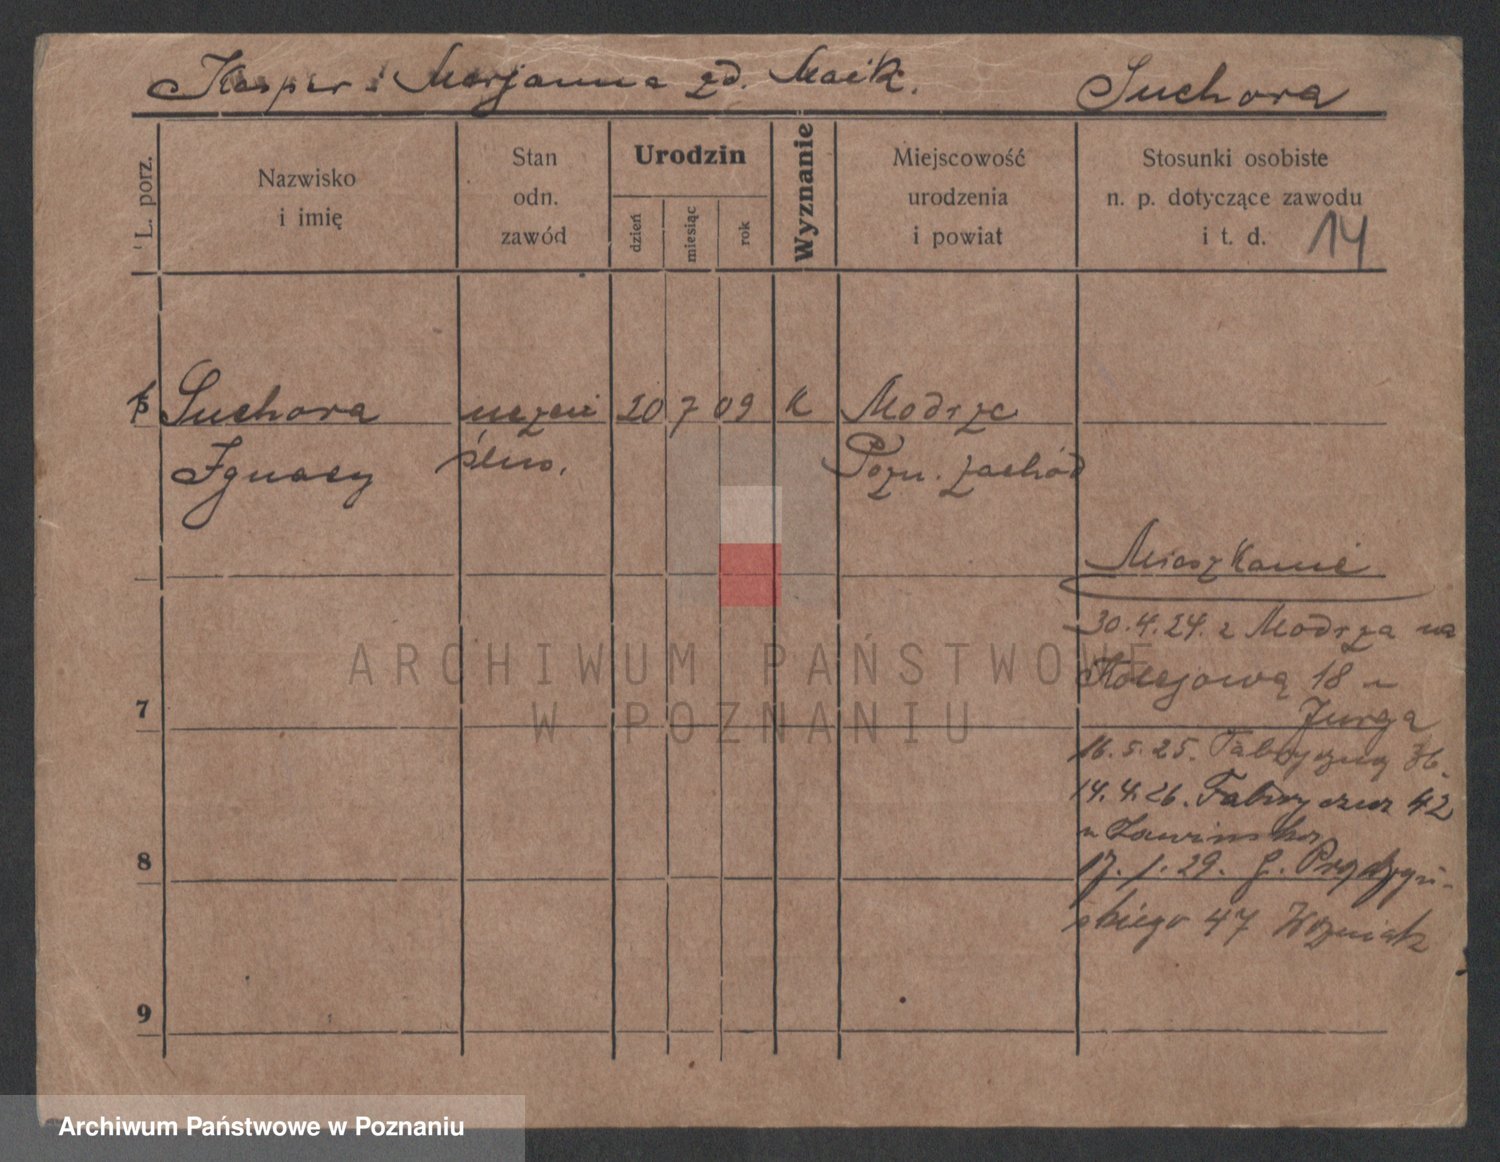 Kasper i Marjanna zd. Maik. Suchora
L. porz.
Nazwisko
i imię
Stan
odn.
zawód
Urodzin
dzień
miesiąc
rok
Wyznanie
Miejscowość
urodzenia
i powiat
Stosunki osobiste
n. p. dotyczące zawodu
i t. d.
14
Suchora uczeń 20 7 09 K Modrze
Ignacy ślus. Pozn. zachód
Mieszkanie
30.4.24. z Modrza na
Kolejową 18
Jurga
16.5.25. Fabryczny 36.
7
14.4.26. Fabryczna 42
17.1.29. G. Prądzyń-
8
skiego 47 Woźniak
9
ARCHIWUM PAŃSTWOWE
W POZNANIU
Archiwum Państwowe w Poznaniu